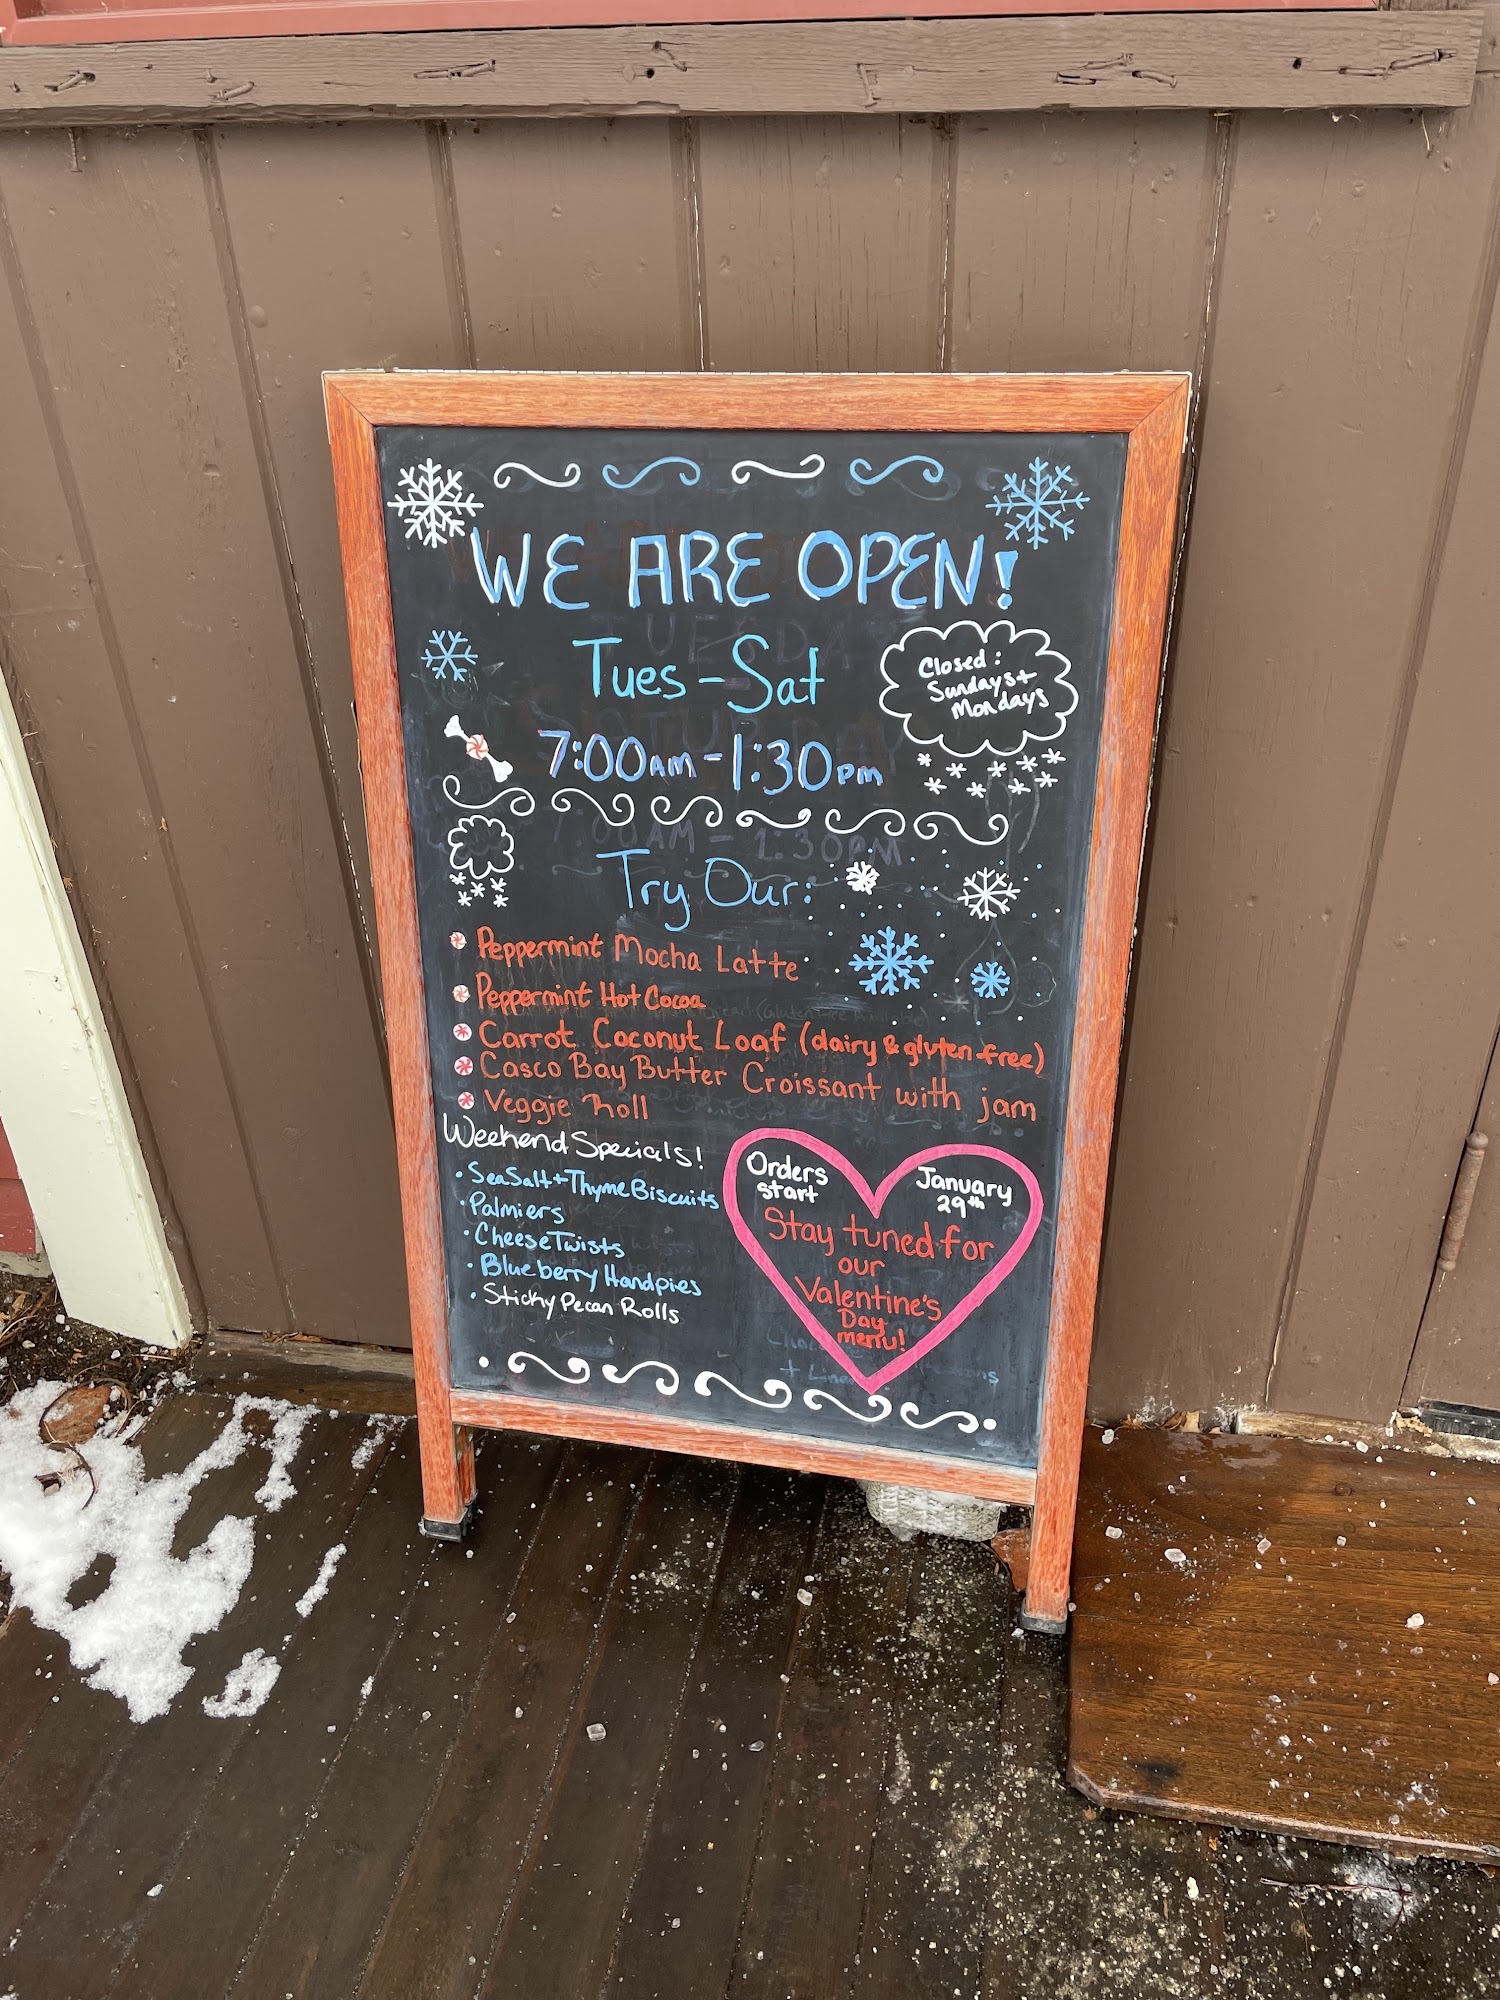 WE ARE OPEN!
Tues - Sat
Closed:
Sundays +
Mondays
7:00AM - 1:30PM
Try Our:
Peppermint Mocha Latte
Peppermint Hot Cocoa
Carrot Coconut Loaf (dairy & gluten free)
Casco Bay Butter Croissant with jam
Veggie Roll
Weekend Specials!
• Sea Salt + Thyme Biscuits
• Palmiers
• Cheese Twists
• Blueberry Handpies
• Sticky Pecan Rolls
Orders
start
January
29th
Stay tuned for
our
Valentine's
Day
menu!